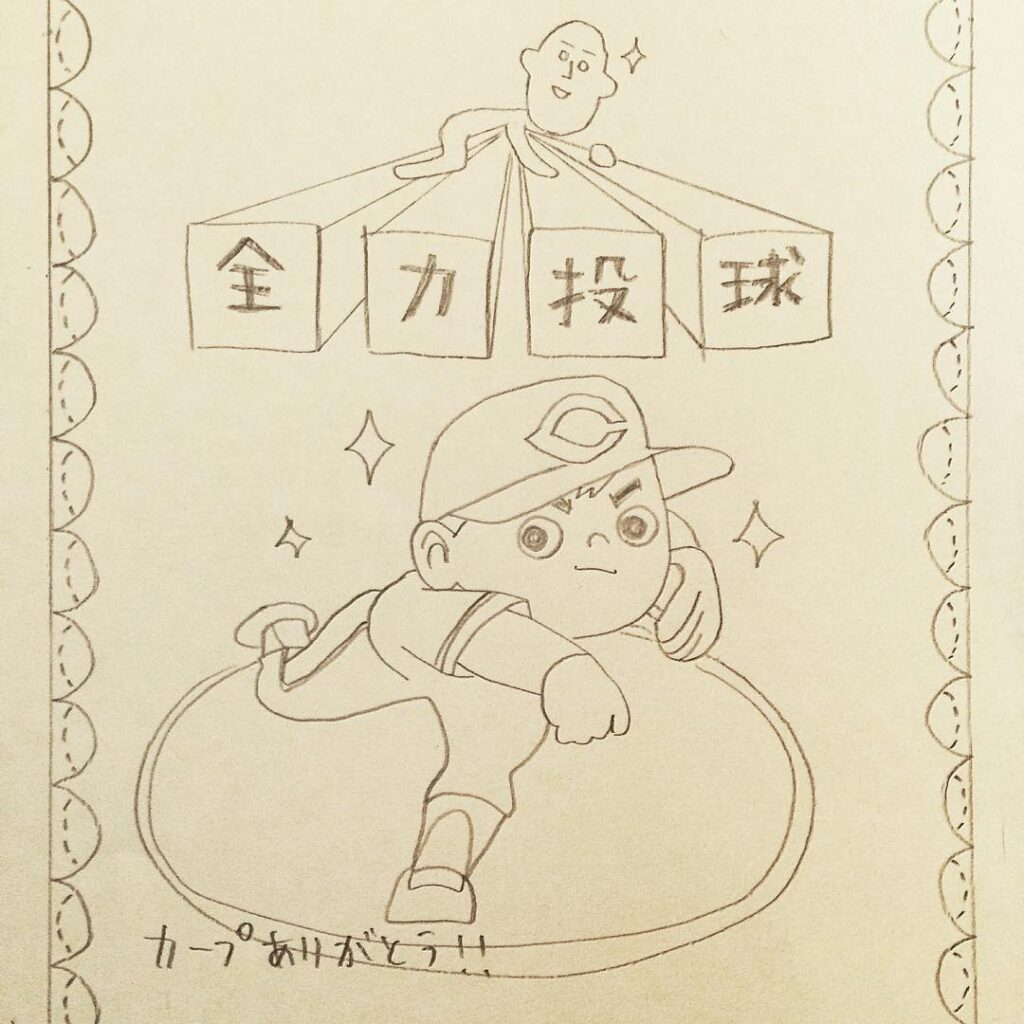 全力投球
C
カープありがとう!!